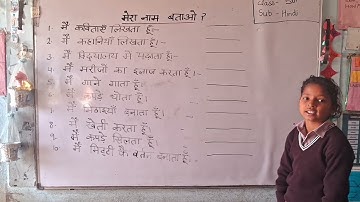 मेरा नाम बताओ ?
Class- 5th
Sub - Hindi
1. मैं कविताएँ लिखता हूँ।-
2. मैं कहानियाँ लिखता हूँ।-
3. मैं विद्यालय में पढ़ाता हूँ।-
4. मैं मरीजों का इलाज करता हूँ।-
5. मैं गाने गाता हूँ।-
6. मैं कपड़े धोता हूँ।
7. मैं मिठाइयाँ बनाता हूँ।
8. मैं खेती करता हूँ।
9. मैं कपड़े सिलता हूँ।
10. मैं मिट्टी के बर्तन बनाता हूँ।